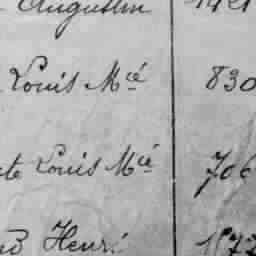 Augustin 1421
Louis Mcé 830
te Louis Mcé 706
Henri 1877